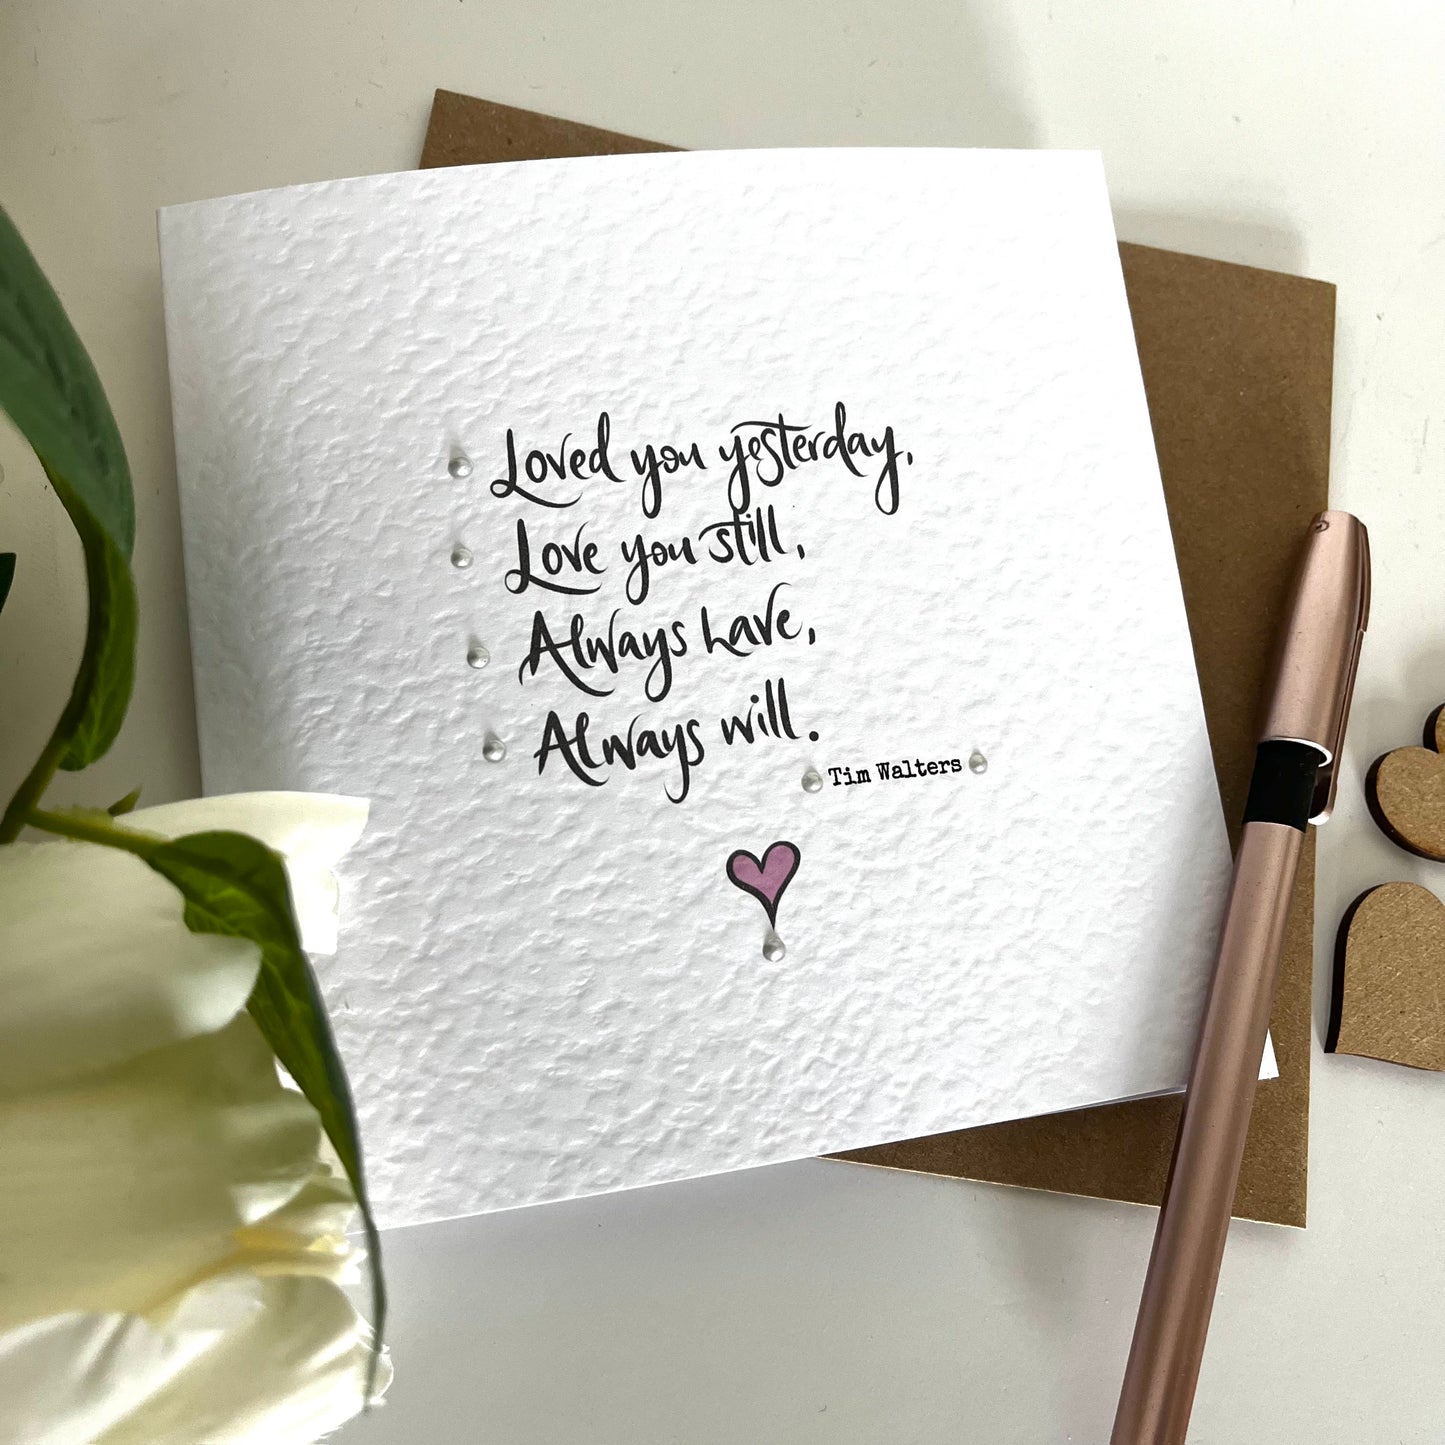 Loved you yesterday,
Love you still,
Always have,
Always will.
Tim Walters